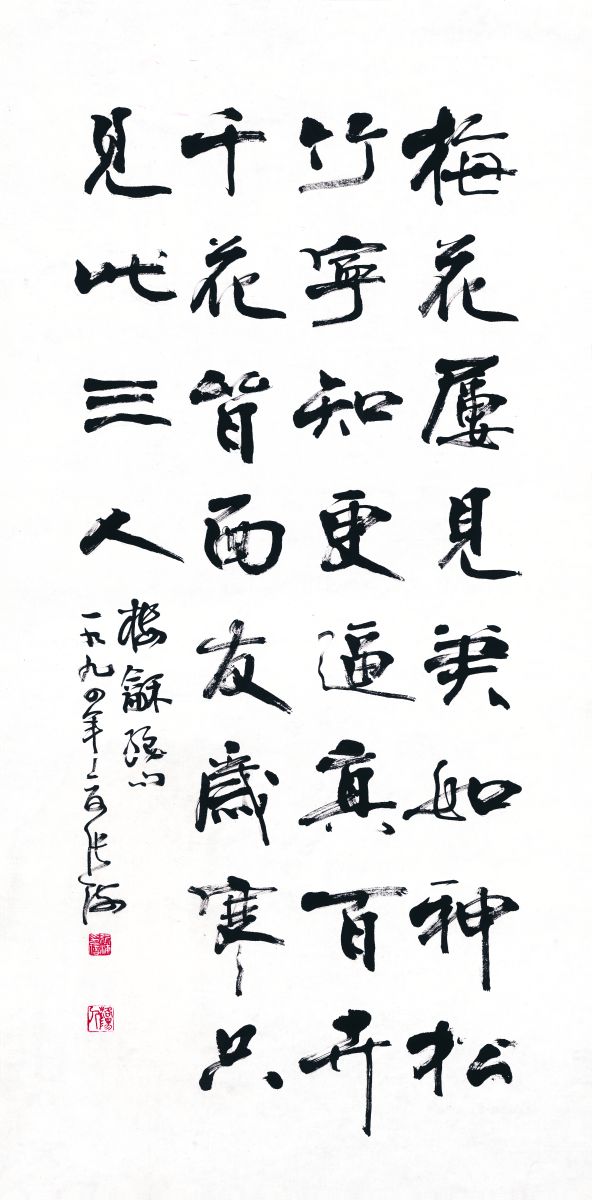 梅花屢見筆如神松
竹寧知更逼真百卉
千花皆面友歲寒只
見此三人
樓鑰絕句
一九九四年 張海